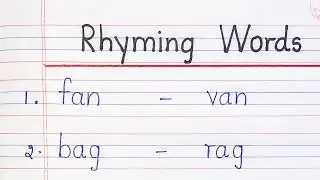 Rhyming Words
1. fan - van
2. bag - rag